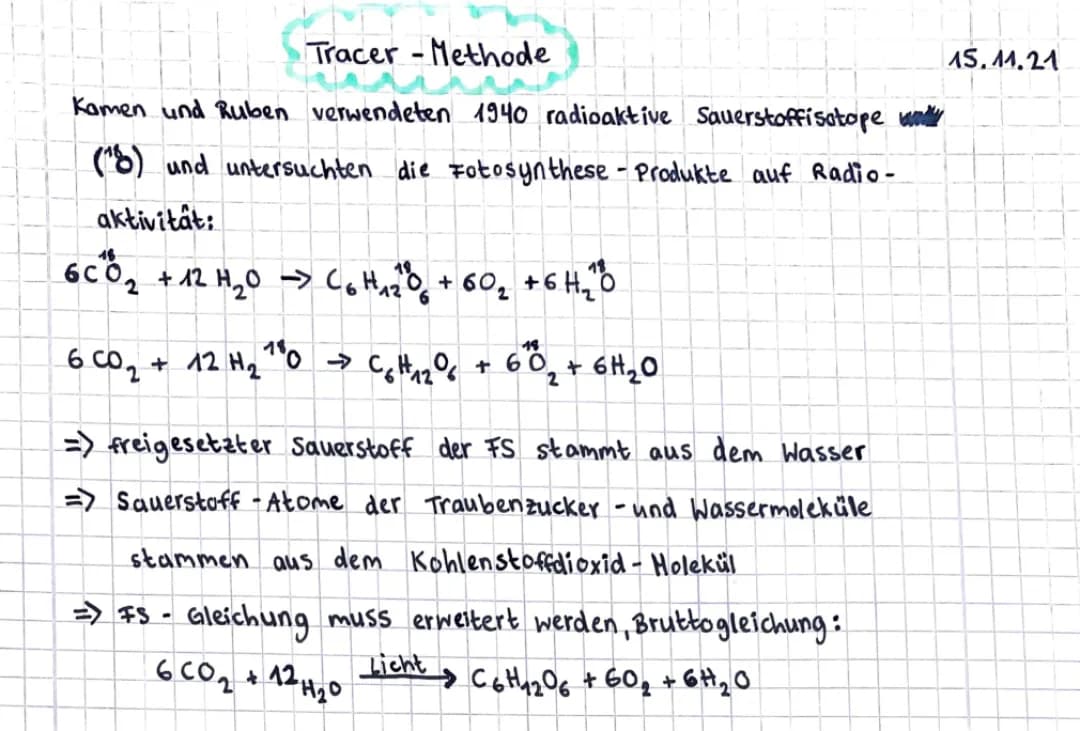 Tracer - Methode
15.11.21
Kamen und Ruben verwendeten 1940 radioaktive Sauerstoffisotope
(¹⁸O) und untersuchten die Fotosynthese - Produkte auf Radio-
aktivität:
6C¹⁸O₂ + 12 H₂O → C₆H₁₂¹⁸O₆ + 6O₂ + 6 H₂¹⁸O
6 CO₂ + 12 H₂¹⁸O → C₆H₁₂O₆ + 6¹⁸O₂ + 6H₂O
=> freigesetzter Sauerstoff der FS stammt aus dem Wasser
=> Sauerstoff - Atome der Traubenzucker - und Wassermoleküle
stammen aus dem Kohlenstoffdioxid - Molekül
=> FS - Gleichung muss erweitert werden, Bruttogleichung:
6 CO₂ + 12 H₂O Licht → C₆H₁₂O₆ + 6O₂ + 6H₂O